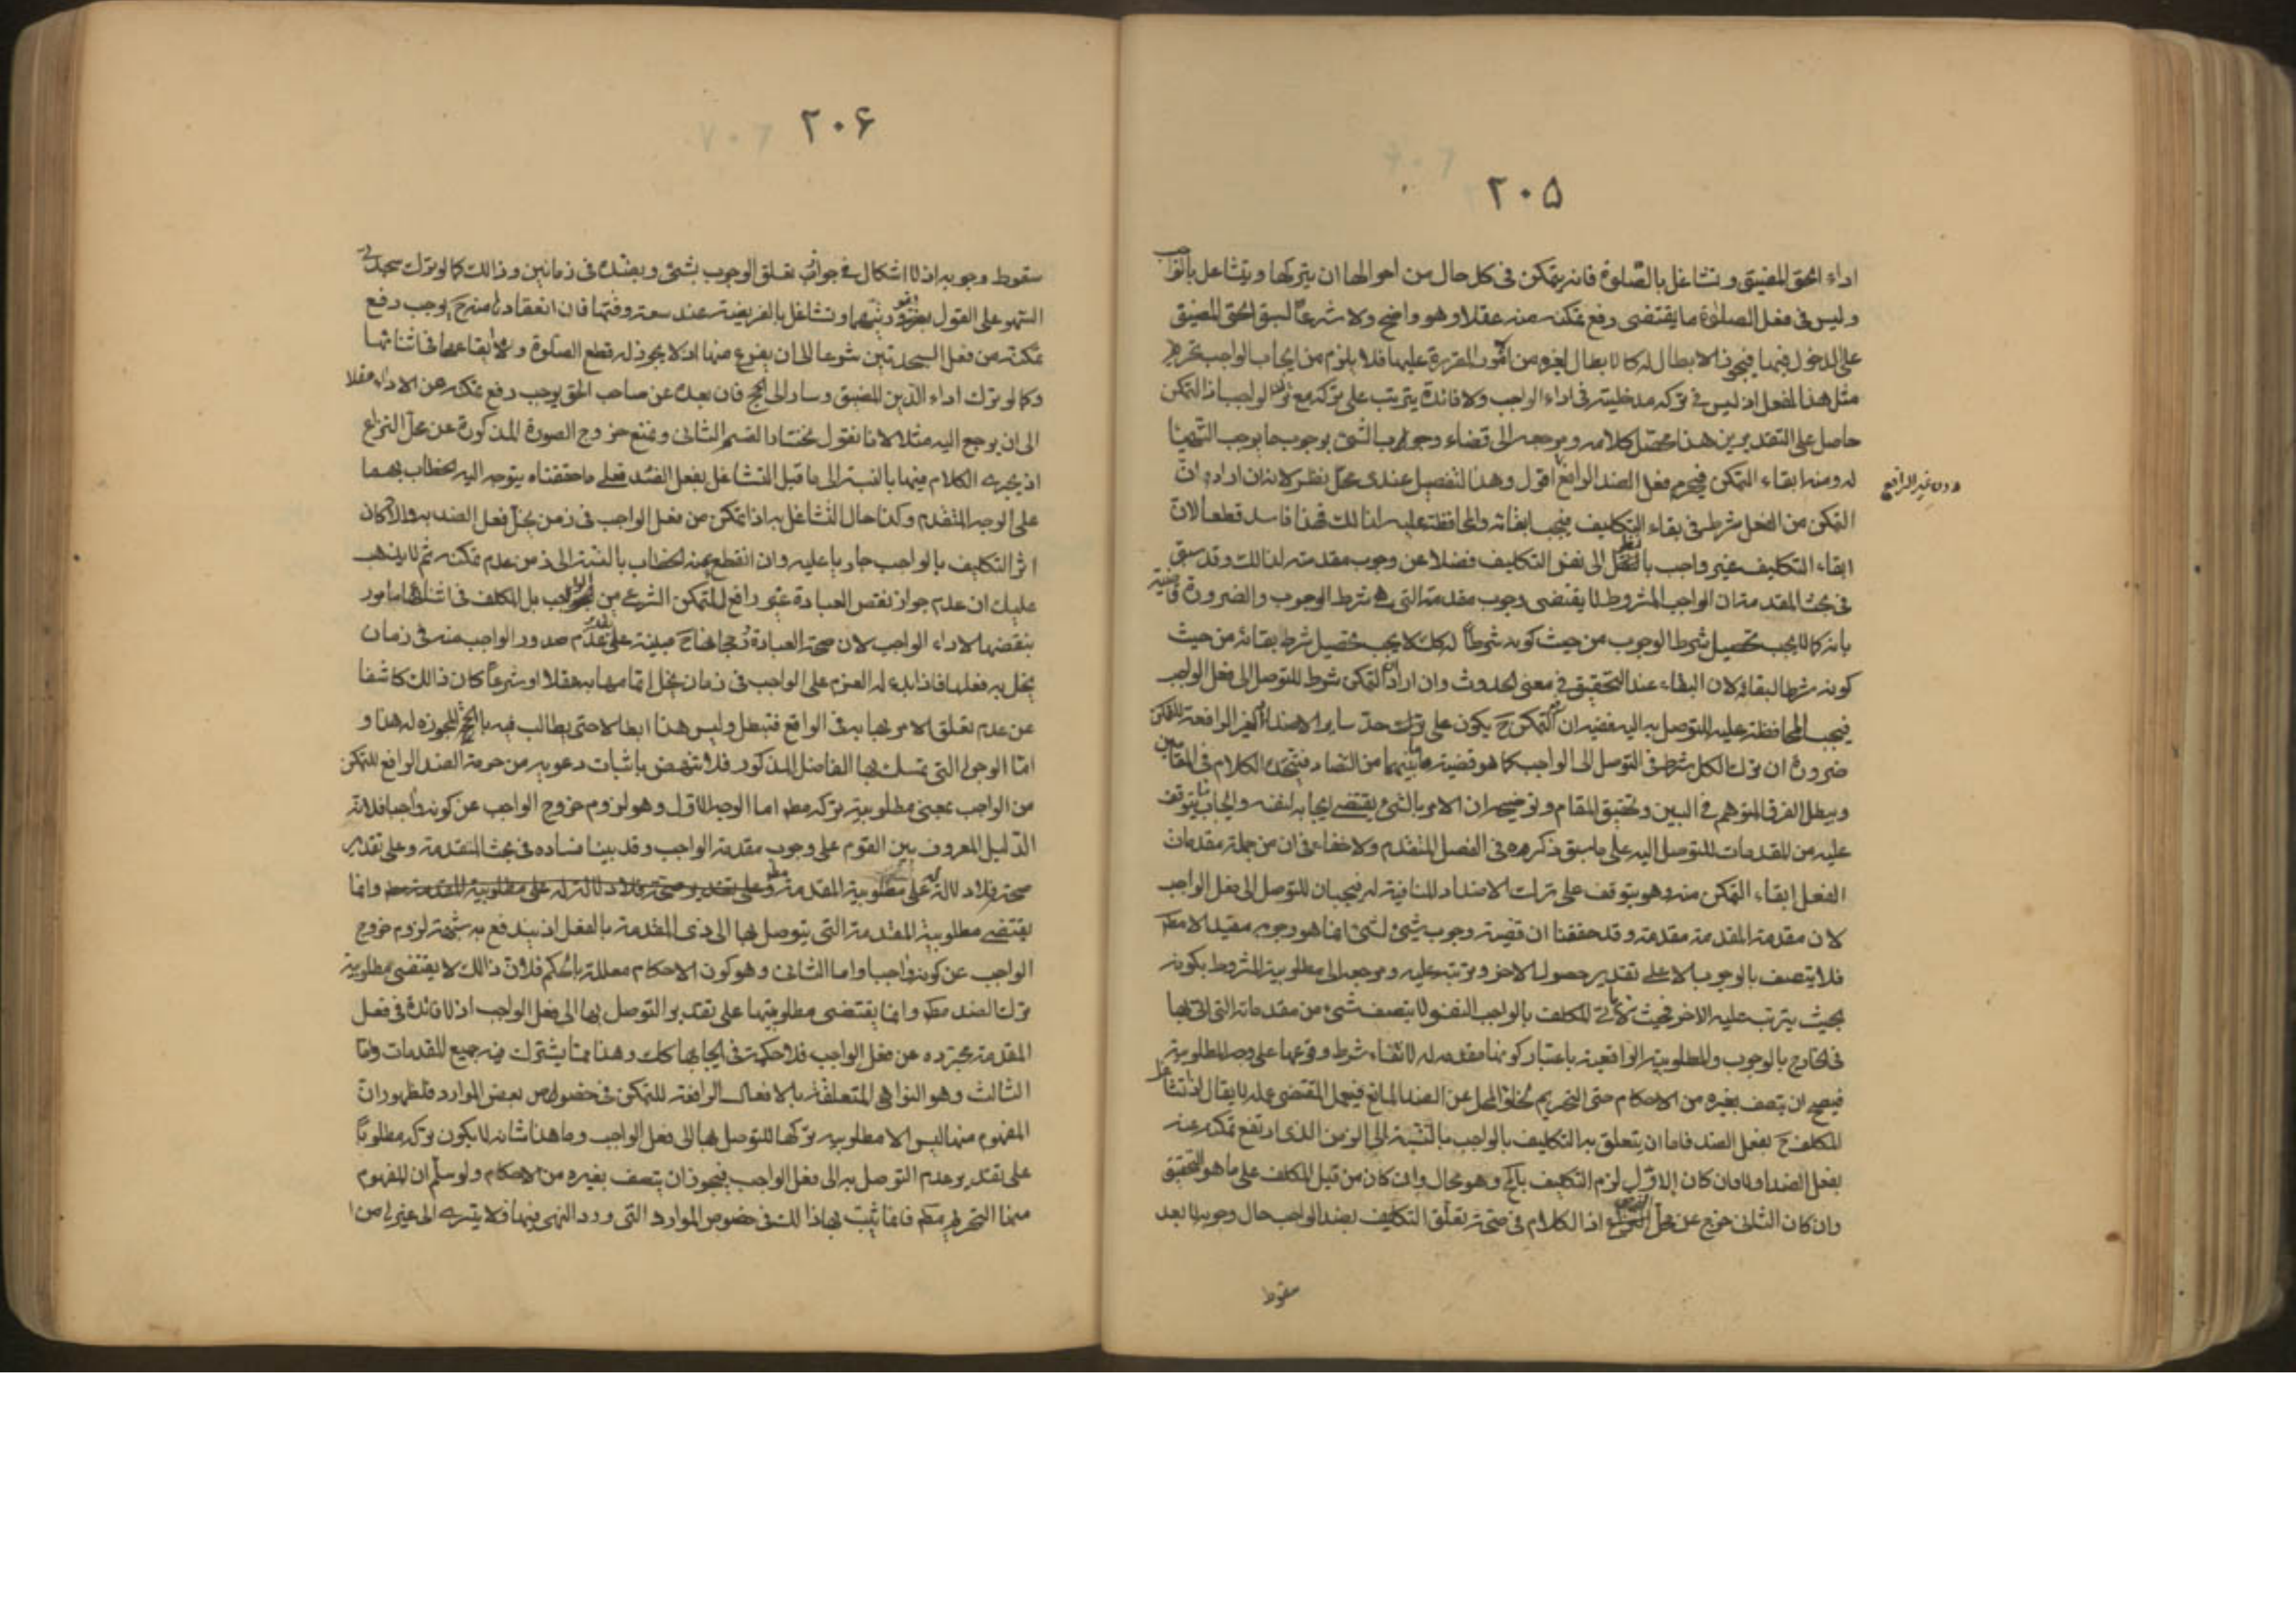 ٢٠۵
اداء الحق المضيق وتشاغل بالصّلوة فانه يتمكن في كل حال من احوالها ان يتركها ويتشاغل بالواجب
وليس في فعل الصلوة ما يقتضى رفع تمكنه منه عقلا وهو واضح ولا شرعاً لسبق الحق المضيق
على الدخول فيها فيجوز الابطال له كالابطال لغيره من الامور المقررة عليها فلا يلزم من ايجاب الواجب تحريم
مثل هذا الفعل اذ ليس في تركه مدخلية في اداء الواجب ولا فائدة يترتب على تركه مع ترك الواجب اذ التمكن
حاصل على التقديرين هذا محصّل كلامه ومرجعه الى قضاء وجوب الشئ بوجوب ما يوجب التهيأ
له ومنه ابقاء التمكن فيحرم فعل الضد الرافع اقول وهذا التفصيل عندى محلّ نظر لانه ان اراد ان
دون غير الرافع
التمكن من الفعل شرط في بقاء التكليف فيجب ابقائه والمحافظة عليه لذالك فهذا فاسد قطعاً لان
ابقاء التكليف غير واجب بالنظر الى نفس التكليف فضلا عن وجوب مقدمته لذالك وقد سبق
في بحث المقدمة ان الواجب المشروط لا يقتضى وجوب مقدمته التى هى شرط الوجوب والضرورة قاضية
بانه كما لا يجب تحصيل شرط الوجوب من حيث كونه شرطاً له كك لا يجب تحصيل شرط بقائه من حيث
كونه شرطا لبقائه لان البقاء عند التحقيق في معنى الحدوث وان اراد ان التمكن شرط للتوصل الى فعل الواجب
فيجب المحافظة عليه للتوصل به اليه ففيه ان التمكن ح يكون على ترك حدّ ساير الاضداد الغير الرافعة للتمكن
ضرورة ان ترك الكل شرط في التوصل الى الواجب كما هو قضية ما بينهما من التضاد فيتحد الكلام في المقامين
ويبطل الفرق المتوهم في البين وتحقيق المقام وتوضيحه ان الامر بالشئ يقتضى ايجابه لنفسه وايجاب ما يتوقف
عليه من المقدمات للتوصل اليه على ما سبق ذكره في الفصل المتقدم ولا خفاء في ان من جملة مقدمات
الفعل ابقاء التمكن منه وهو يتوقف على ترك الاضداد المنافية له فيجبان للتوصل الى فعل الواجب
لان مقدمة المقدمة مقدمة وقد حققنا ان قضية وجوب شئ لشئ انما هو وجوبه مقيدا لا مطلقا
فلا يتصف بالوجوب الا على تقدير حصول الاخر وترتبه عليه ومرجعه الى مطلوبية المشروط بكونه
بحيث يترتب عليه الاخر فحيث لا ياتى المكلف بالواجب النفسى لا يتصف شئ من مقدماته التى اتى بها
في الخارج بالوجوب والمطلوبية الواقعية باعتبار كونها مقدمة له لانتفاء شرط وقوعها على وصف المطلوبية
فيصح ان يتصف بغيره من الاحكام حتى التحريم لخلو المحل عن الضد المانع فيعمل المقتضى عمله لا يقال اذا تشاغل
المكلف ح بفعل الضد فاما ان يتعلق به التكليف بالواجب بالنسبة الى الزمن الذى ارتفع تمكنه عنه
بفعل الضد اولا فان كان الاول لزم التكليف بالمح وهو محال وان كان من قبل المكلف على ما هو التحقيق
وان كان الثانى خرج عن محل الفرض اذ الكلام في صحة تعلق التكليف بضد الواجب حال وجوبه لا بعد
سقوط
٢٠۶
سقوط وجوبه اذ لا اشكال في جواز تعلق الوجوب بشئ وبضده في زمانين وذالك كما لو ترك سجدتى
السهو على القول بفوريتهما وتشاغل بالفريضة عند سعة وقتها فان انعقادها منه ح يوجب رفع
تمكنه من فعل السجدتين شرعا الى ان يفرغ منها اذ لا يجوز له قطع الصّلوة ولا ايقاعهما في اثنائها
وكما لو ترك اداء الدّين المضيق وسار الى الحج فان بعده عن صاحب الحق يوجب رفع تمكنه من الاداء عقلا
الى ان يرجع اليه مثلا لانا نقول نختار القسم الثانى ونمنع خروج الصورة المذكورة عن محل النزاع
اذ يجرى الكلام فيها بالنسبة الى ما قبل التشاغل بفعل الضد فعلى ما حققناه يتوجه اليه الخطاب بهما
على الوجه المتقدم وكذا حال التشاغل به اذا تمكن من فعل الواجب في زمن يحلّ فعل الضد به والا كان
اثر التكليف بالواجب جاريا عليه وان انقطع عنه الخطاب بالنسبة الى زمن عدم تمكنه ثم لا يذهب
عليك ان عدم جواز نقض العبادة غير رافع للتمكن الشرعى من الواجب بل المكلف في اثنائها مامور
بنقضها لاداء الواجب لان صحة العبادة ورجحانها ح مبنية على تقدير عدم صدور الواجب منه في زمان
يخل به فعلها فاذا بدا له العزم على الواجب في زمان يخل اتمامها به عقلا او شرعاً كان ذالك كاشفا
عن عدم تعلق الامر بها به في الواقع فتبطل وليس هذا ابطالا حتى يطالب فيه بالحجة المجوزه له هذا و
امّا الوجوه التى تمسك بها الفاضل المذكور فلا تنهض باثبات دعويه من حرمة الضد الرافع للتمكن
من الواجب بمعنى مطلوبية تركه مطه اما الوجه الاول وهو لزوم خروج الواجب عن كونه واجبا فلانه
الدّليل المعروف بين القوم على وجوب مقدمة الواجب وقد بينا فساده في بحث المقدمة وعلى تقدير
صحته فلا دلالة له على مطلوبية المقدمة مطه وانما
يقتضى مطلوبية المقدمة التى يتوصل بها الى ذى المقدمة بالفعل اذ يندفع به شبهة لزوم خروج
الواجب عن كونه واجبا واما الثانى وهو كون الاحكام معللة بالحكم فلان ذالك لا يقتضى مطلوبية
ترك الضد مطه وانما يقتضى مطلوبيتها على تقدير التوصل بها الى فعل الواجب اذ لا فائدة في فعل
المقدمة مجرّده عن فعل الواجب فلا حكمة في ايجابها كك وهذا مما يشترك فيه جميع المقدمات وامّا
الثالث وهو النواهى المتعلقة بالافعال الرافعة للتمكن في خصوص بعض الموارد فلظهور ان
المفهوم منها ليس الا مطلوبية تركها للتوصل بها الى فعل الواجب وما هذا شانه لا يكون تركه مطلوباً
على تقدير عدم التوصل به الى فعل الواجب فيجوز ان يتصف بغيره من الاحكام ولو سلم ان المفهوم
منها التحريم مطه فانما يثبت بها ذالك في خصوص الموارد التى ورد النهى فيها فلا يتسرى الى غيرها من ا